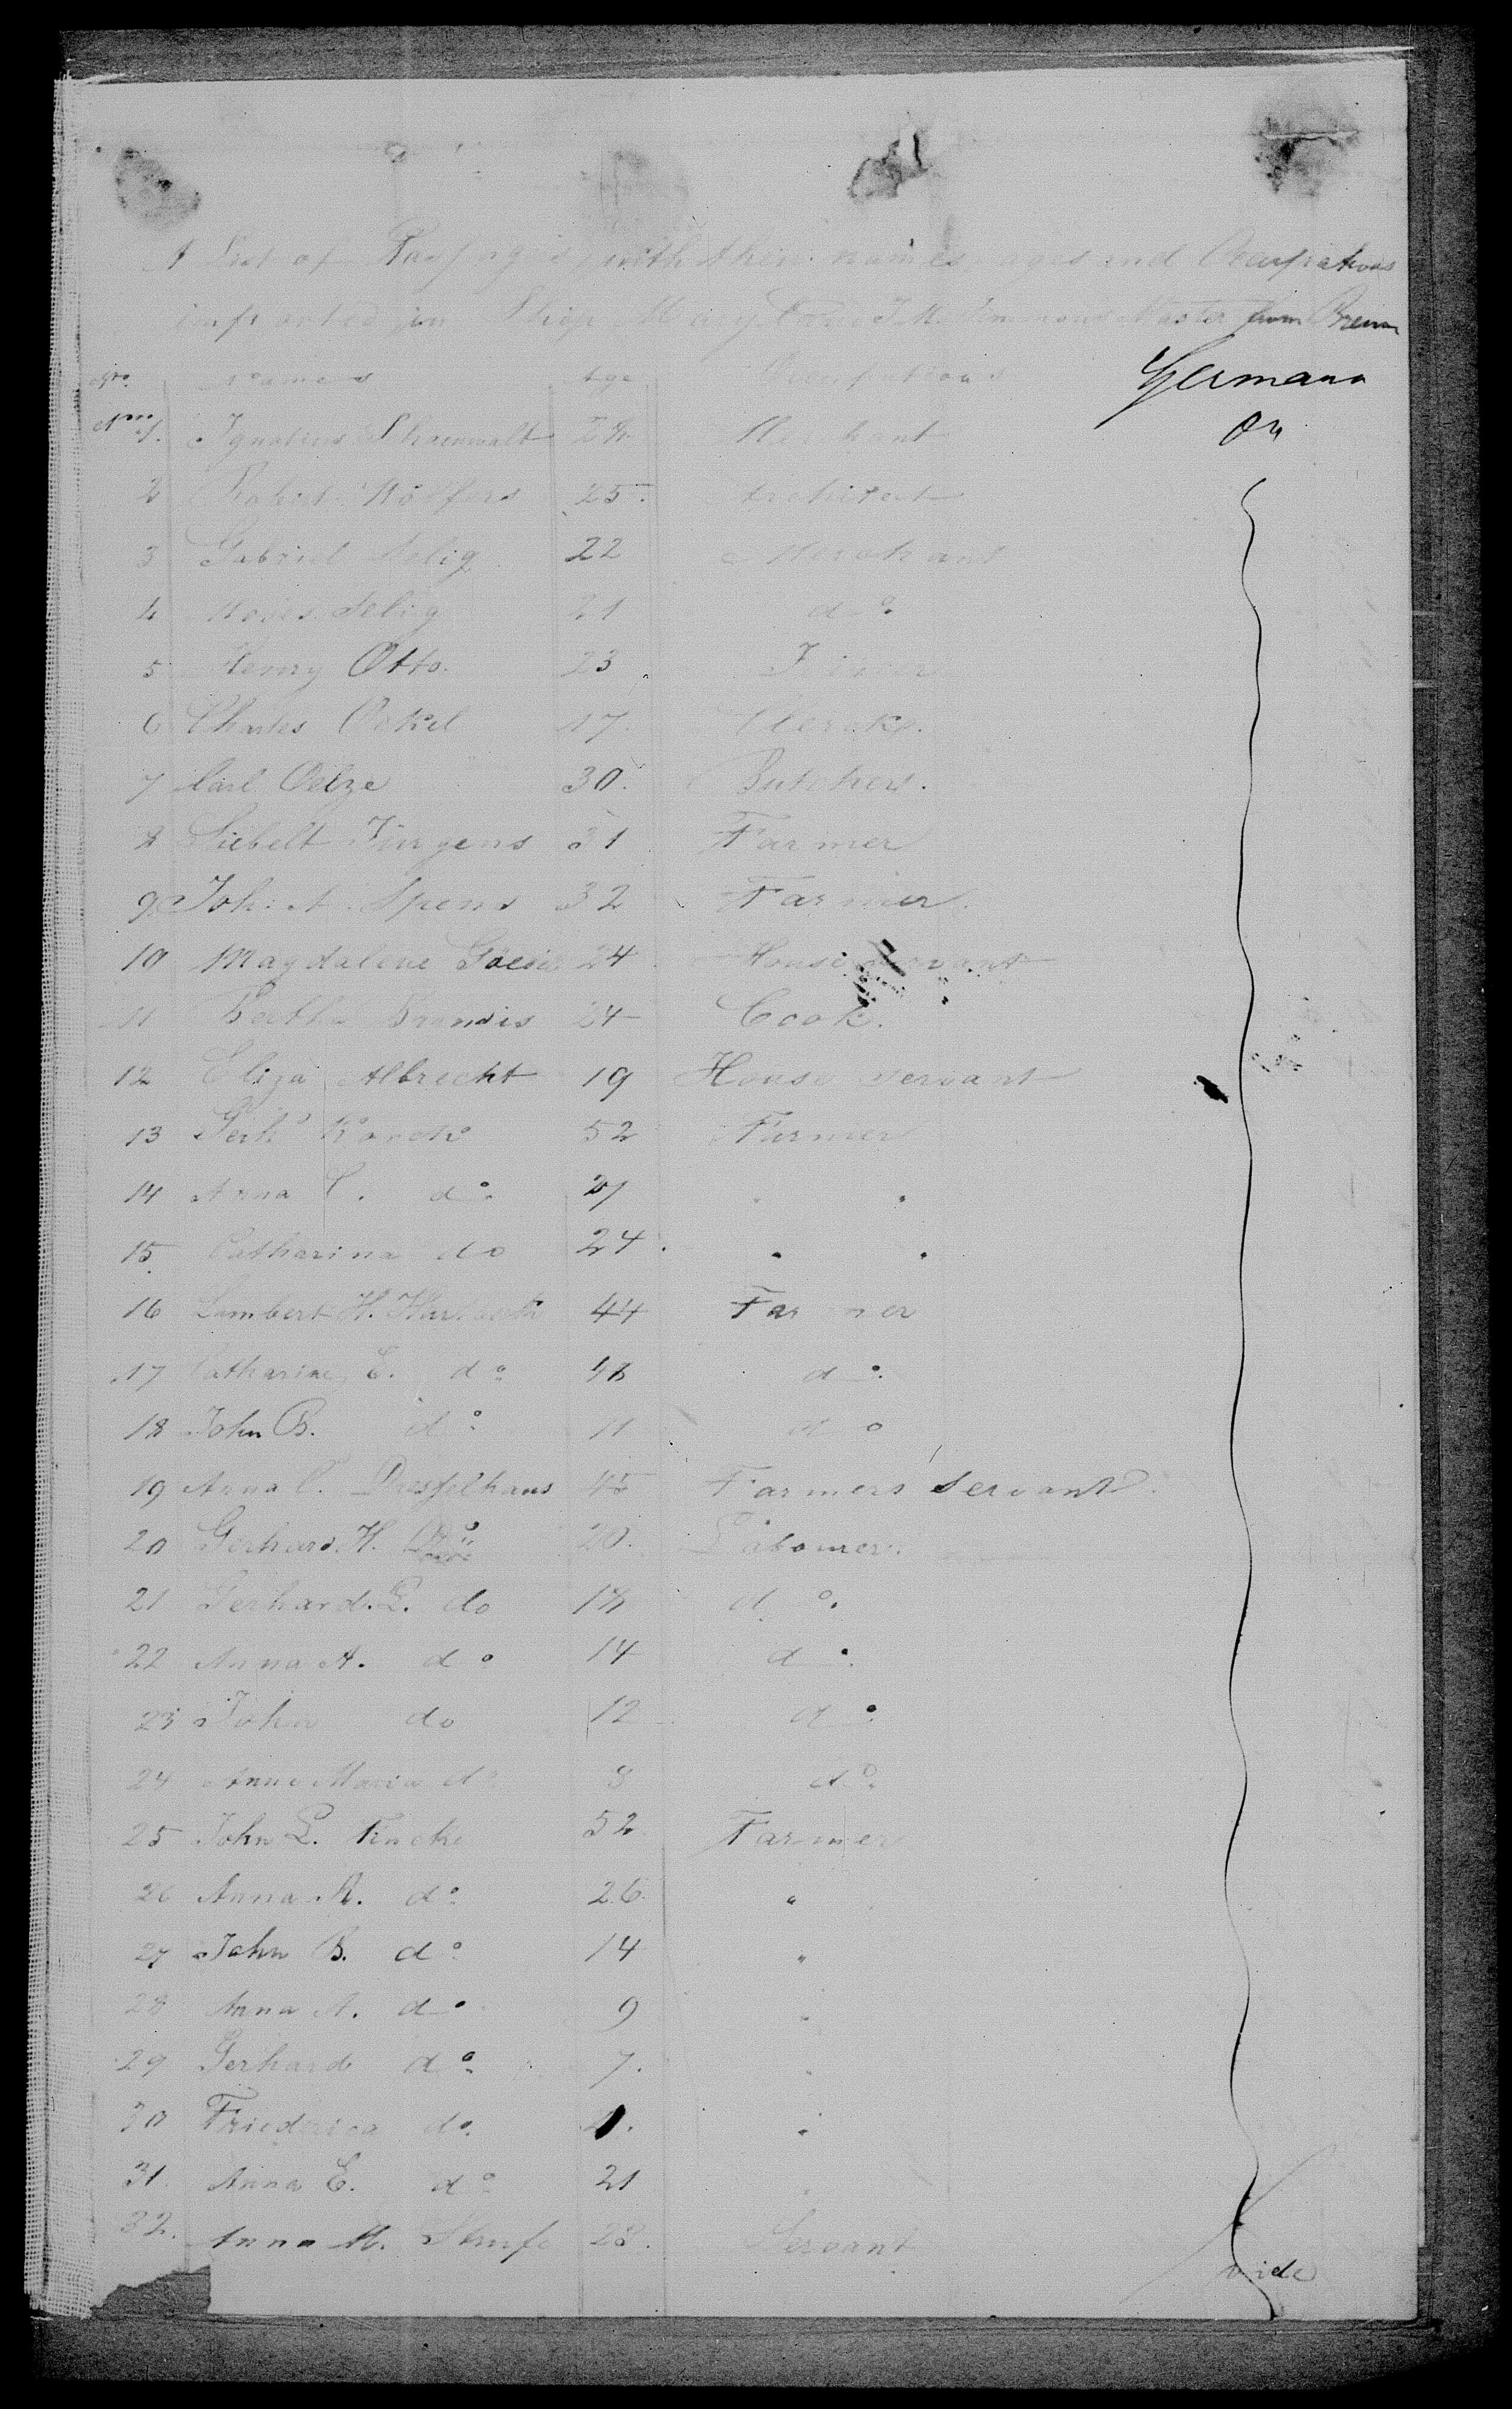 A List of Passengers with their names, ages and Occupations
imported in Ship Mary Master from Bremen
No. Names Age Occupations Germany
No. 1. Ignatius 28 Merchant Do
2 Robert 25 Architect
3 Gabriel Selig 22 Merchant
4 Moses Selig 21 do
5 Henry Otto. 23
6 Charles Ockel 17 Clerck.
7 Carl Oelze 30. Butcher.
8 Siebelt Jürgens 31 Farmer
9 Joh. A. Spens 32 Farmer.
10 Magdalene 24 House servant
11 Bertha Brandis 24 Cook.
12 Eliza Albrecht 19 House servant
13 Gerh 52 Farmer
14 Anna C. do 21 " "
15 Catharina do 24. " "
16 Lambert H. 44 Farmer
17 Catharine E. do 48 do
18 John B. do 11 do
19 Anna C. Dresselhaus 45 Farmers Servant
20 Gerhard H. Do 20. Labourer.
21 Gerhard L. do 18 do.
22 Anna A. do 14 do
23 John do 12 do
24 Anne Maria do 8 do
25 John L. Fincke 52 Farmer
26 Anna R. do 26. "
27 John B. do 14 "
28 Anna A. do 9 "
29 Gerhard do 7. "
30 Friederica do "
31 Anna E. do 21
32. Anna M. 28. Servant
vide